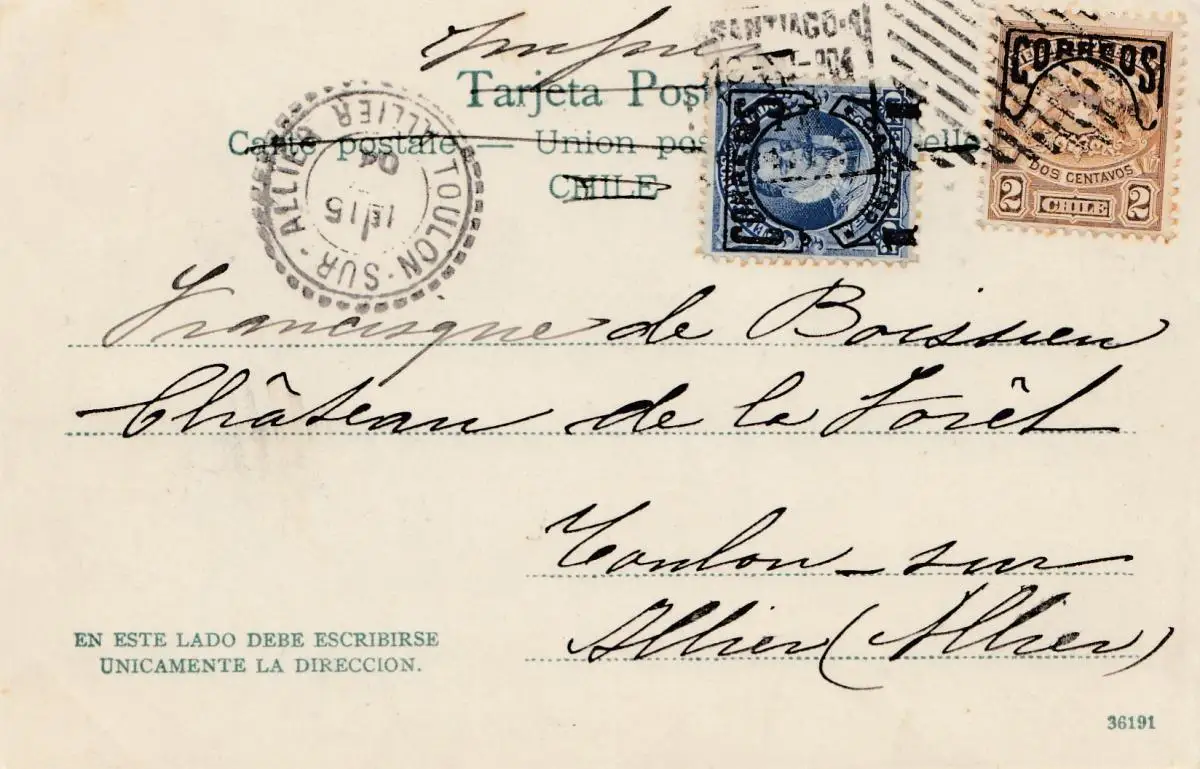 SANTIAGO
Tarjeta Pos
Carte postale — Union pos elle
CHILE
CORREOS
DOS CENTAVOS
2 CHILE 2
CORREOS
CHILE
TOULON-SUR-ALLIER
ALLIER
15
04
Francisque de Boissieu
Château de la Forêt
Toulon-sur
Allier (Allier)
EN ESTE LADO DEBE ESCRIBIRSE
UNICAMENTE LA DIRECCION.
36191